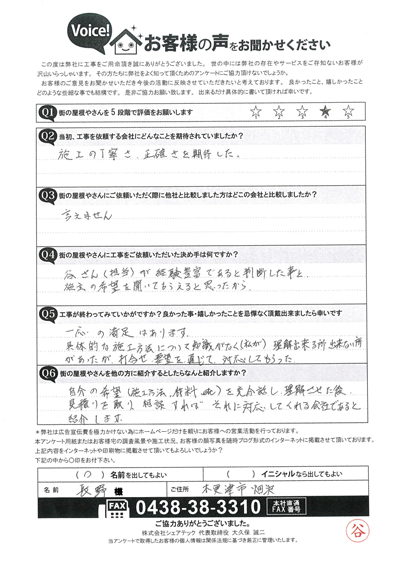 Voice!
お客様の声をお聞かせください
この度は弊社に工事をご用命頂き誠にありがとうございました。世の中には弊社の存在やサービスをご存知ないお客様が
沢山いらっしゃいます。その方たちに弊社をよく知って頂くためのアンケートにご協力頂けないでしょうか。
お客様のご意見をお聞かせいただき今後の活動に反映させていただきたいと考えております。良かったこと、嬉しかったこと
どのような些細な事でも結構です。是非ご協力お願い致します。出来るだけ具体的に書いて頂ければ幸いです。
Q1 街の屋根やさんを5段階で評価をお願いします ☆ ☆ ☆ ★ ☆
Q2 当初、工事を依頼する会社にどんなことを期待されていましたか?
施工の丁寧さ、正確さを期待した。
Q3 街の屋根やさんにご依頼いただく際に他社と比較しました方はどこの会社と比較しましたか?
言えません
Q4 街の屋根やさんに工事をご依頼いただいた決め手は何ですか?
谷さん(担当)が経験豊富であると判断した事と、
施主の希望を聞いてもらえると思ったから。
Q5 工事が終わってみていかがですか?良かった事・嬉しかったことを忌憚なく頂戴出来ましたら幸いです
一応の満足はあります。
具体的な施工方法について知識がなく(私が)理解出来る所出来ない所
があったが、打合せ、要望を通じて、対応してもらった。
Q6 街の屋根やさんを他の方に紹介するとしたらなんと紹介しますか?
自分の希望(施工方法、材料、etc)を充分話し、理解させた後、
見積りを取り、相談すれば それに対応してくれる会社であると
紹介します。
*弊社は広告宣伝費を極力かけない為にホームページだけを頼りにお客様への営業活動を行っております。
本アンケート用紙またはお客様宅の調査風景や施工状況、お客様の顔写真を随時ブログ形式のインターネットに掲載させて頂いております。
上記内容をインターネットや印刷物に掲載させて頂いてもよろしいでしょうか?
下記の中から〇印をお付下さい。
(〇)名前を出してもよい ( )イニシャルなら出してもよい
名前 長野 様 ご住所 木更津市畑沢
FAX 0438-38-3310 本社直通FAX番号
ご協力ありがとうございました。
株式会社シェアテック 代表取締役 大久保 誠二
当アンケートで取得したお客様の個人情報は関係法規に基づき厳正に管理いたします。
谷